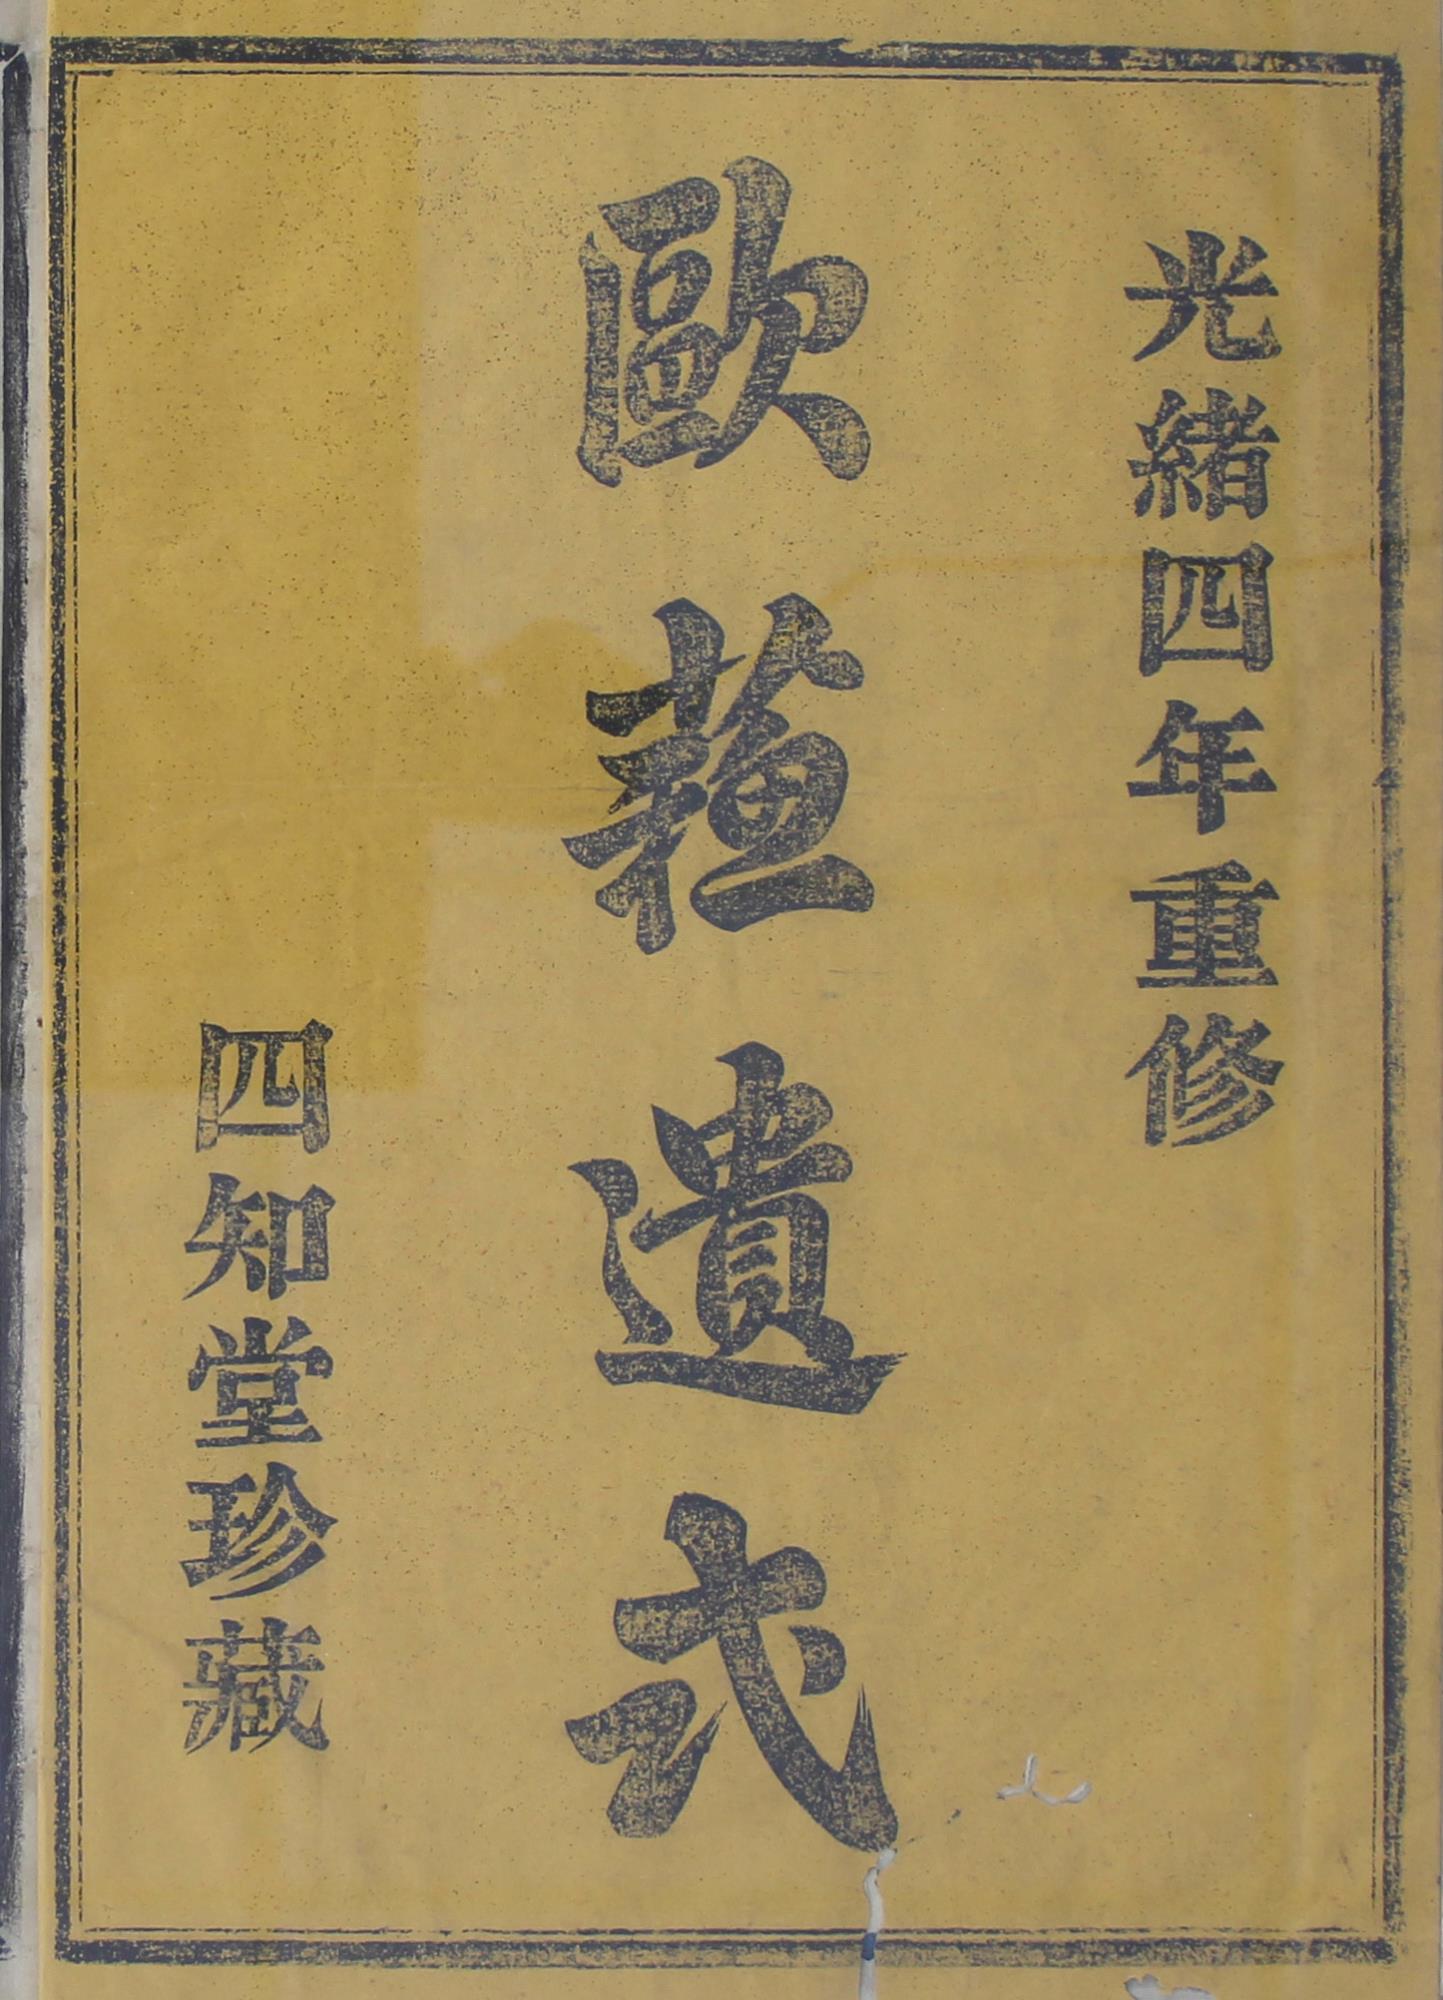 光緒四年重修
歐蘓遺式
四知堂珍藏